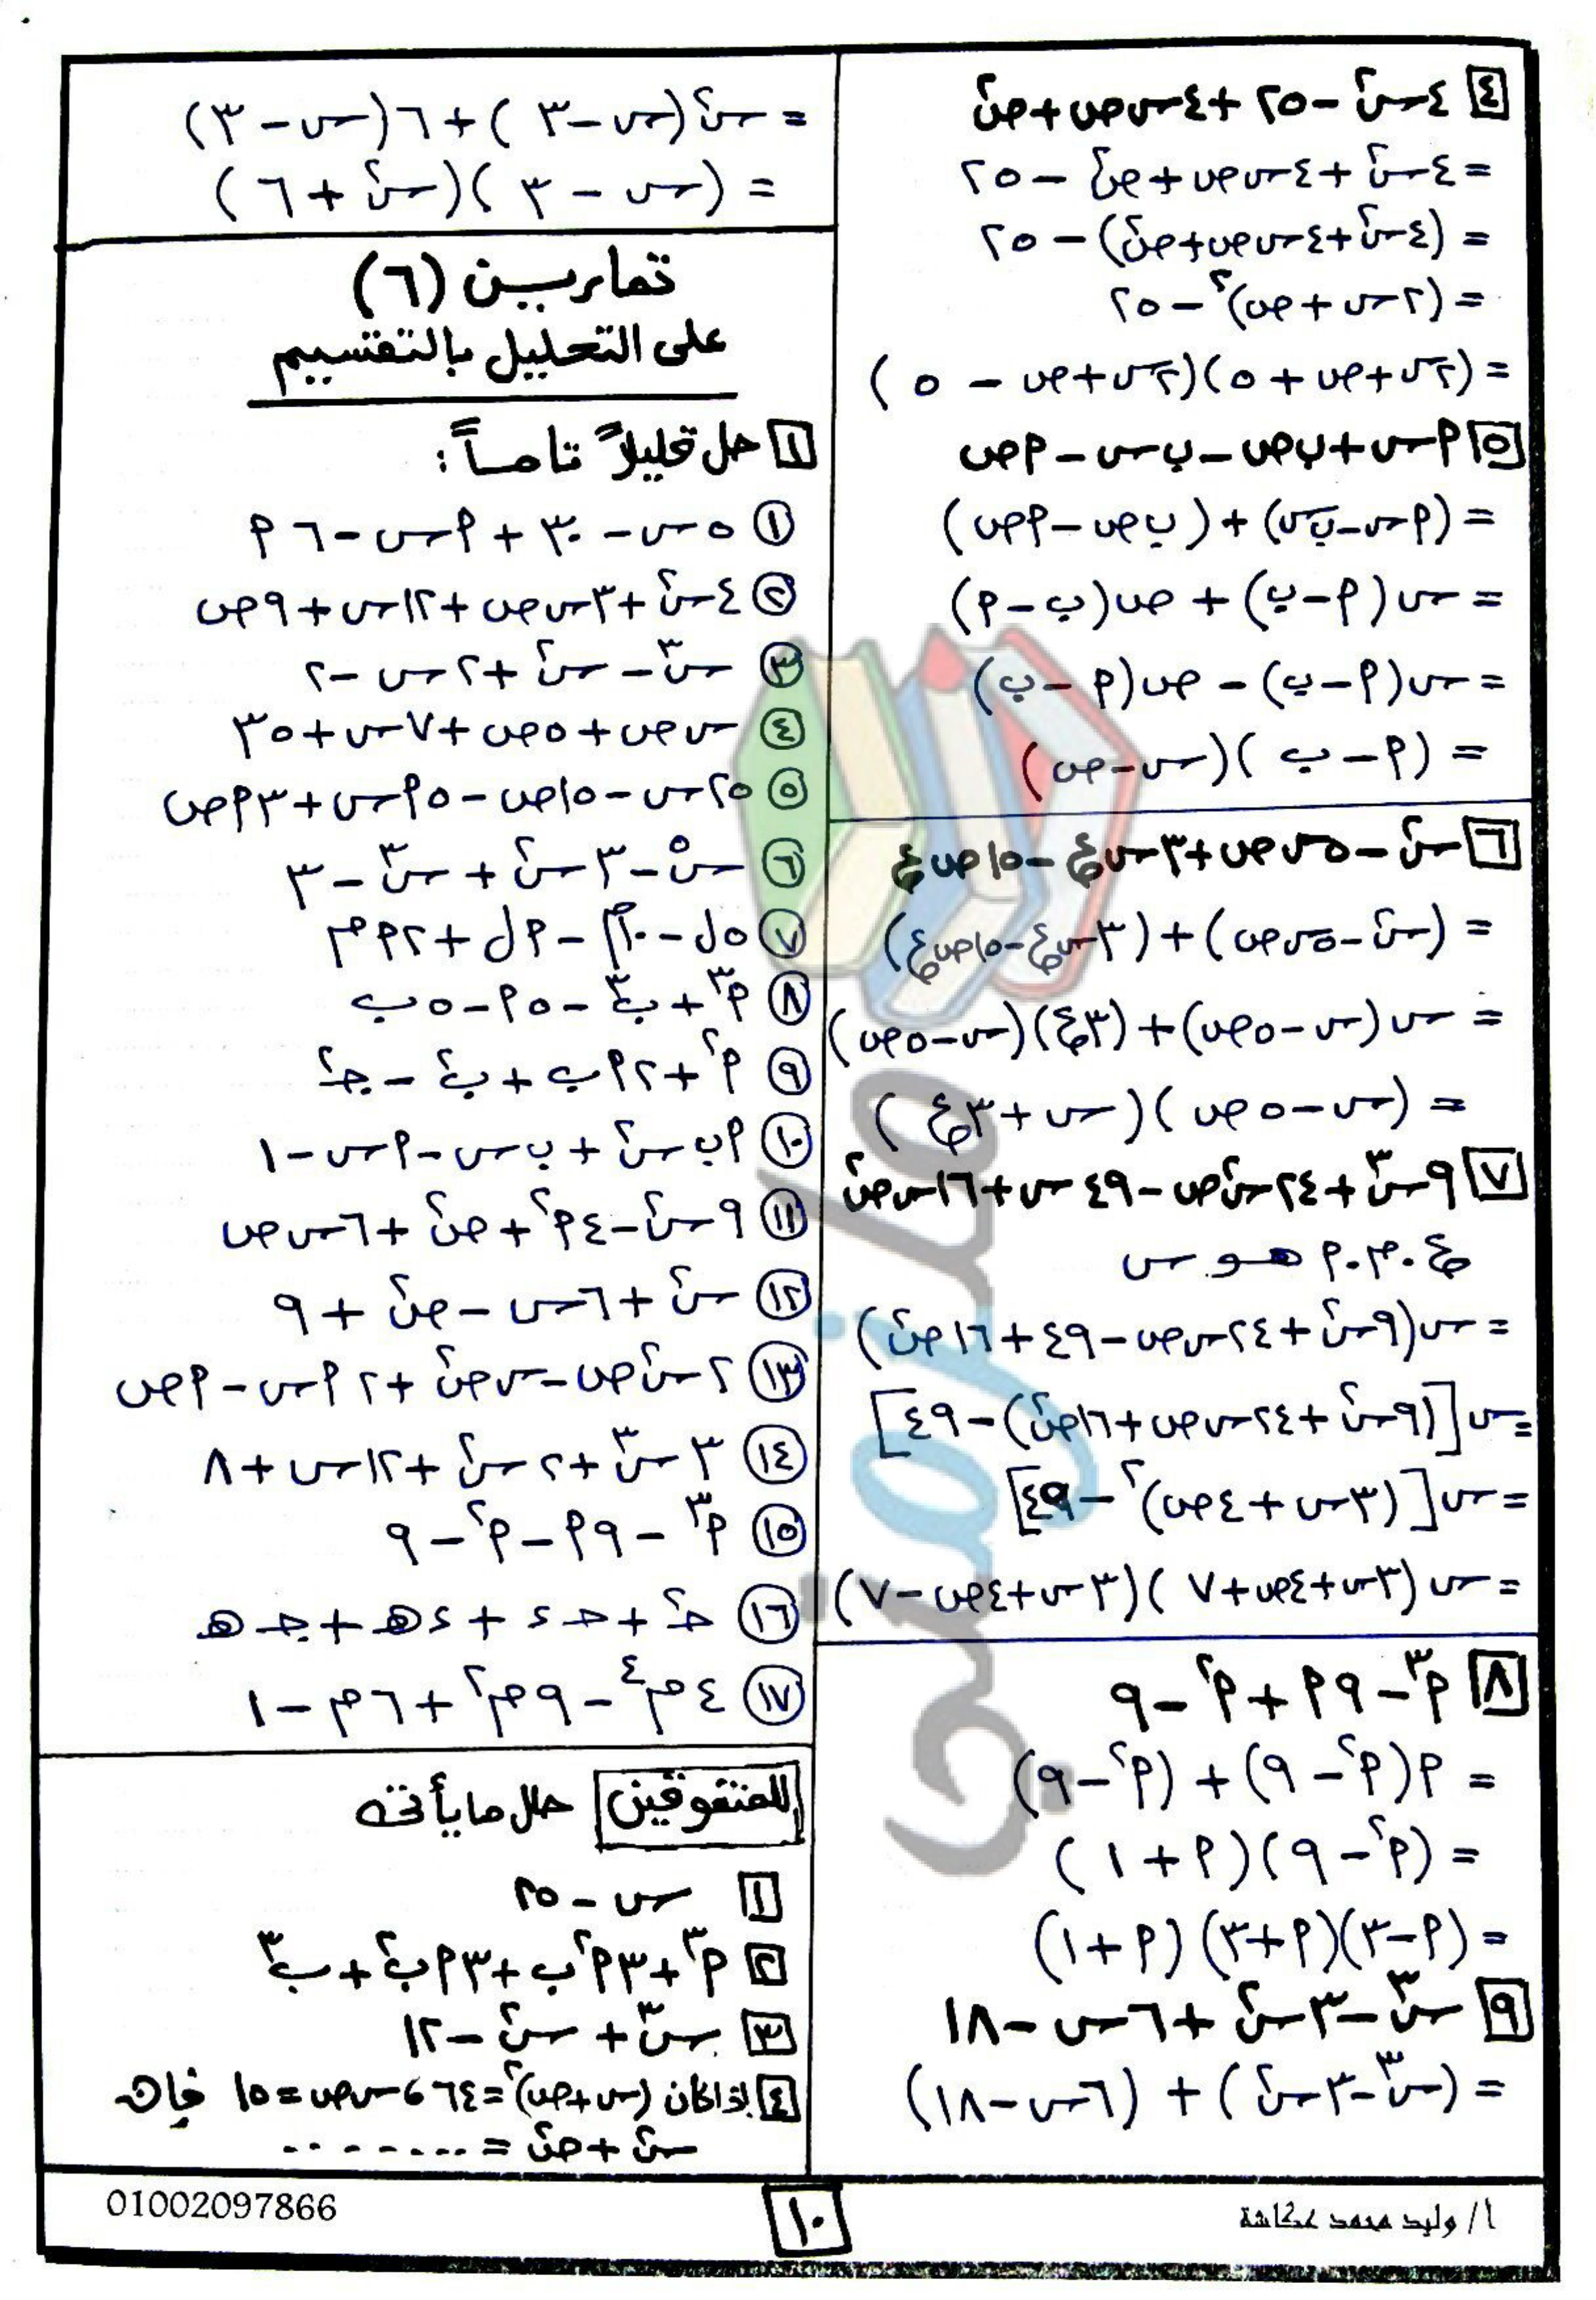 [٤] ٤س٢ - ٢٥ + ٤س ص + ص٢
= ٤س٢ + ٤س ص + ص٢ - ٢٥
= (٤س٢ + ٤س ص + ص٢) - ٢٥
= (٢س + ص)٢ - ٢٥
= (٢س + ص + ٥)(٢س + ص - ٥)
[٥] م س + ب ص - ب س - م ص
= (م س - ب س) + (ب ص - م ص)
= س(م - ب) + ص(ب - م)
= س(م - ب) - ص(م - ب)
= (م - ب)(س - ص)
[٦] س٢ - ٥س ص + ٣س ع - ١٥ص ع
= (س٢ - ٥س ص) + (٣س ع - ١٥ص ع)
= س(س - ٥ص) + (٣ع)(س - ٥ص)
= (س - ٥ص)(س + ٣ع)
[٧] ٩س٣ + ٢٤س٢ص - ٤٩س + ١٦س ص٢
ع.م.م هو س
= س(٩س٢ + ٢٤س ص - ٤٩ + ١٦ص٢)
= س[(٩س٢ + ٢٤س ص + ١٦ص٢) - ٤٩]
= س[(٣س + ٤ص)٢ - ٤٩]
= س(٣س + ٤ص + ٧)(٣س + ٤ص - ٧)
[٨] م٣ - ٩م + م٢ - ٩
= م(م٢ - ٩) + (م٢ - ٩)
= (م٢ - ٩)(م + ١)
= (م - ٣)(م + ٣)(م + ١)
[٩] س٣ - ٣س٢ + ٦س - ١٨
= (س٣ - ٣س٢) + (٦س - ١٨)
= س٢(س - ٣) + ٦(س - ٣)
= (س - ٣)(س٢ + ٦)
تمارين (٦)
على التحليل بالتقسيم
[١] حلل تحليلاً تاماً :
(١) ٥س - ٣٠ + م س - ٦م
(٢) ٤س٢ + ٣س ص + ١٢س + ٩ص
(٣) س٣ - س٢ + ٢س - ٢
(٤) س ص + ٥ص + ٧س + ٣٥
(٥) ٢٥س - ١٥ص - ٥م س + ٣م ص
(٦) س٥ - ٣س٢ + س٣ - ٣
(٧) ٥ل - ١٠م - م ل + ٢م م
(٨) م٣ + ب٣ - ٥م - ٥ب
(٩) م٢ + ٢م ب + ب٢ - جـ٢
(١٠) م ب س٢ + ب س - م س - ١
(١١) ٩س٢ - ٤م٢ + ص٢ + ٦س ص
(١٢) س٢ + ٦س - ص٢ + ٩
(١٣) ٢س٢ص - س ص٢ + ٢م س - م ص
(١٤) ٣س٣ + ٢س٢ + ١٢س + ٨
(١٥) م٣ - ٩م - م٢ - ٩
(١٦) حـ٢ + حـ ء + ء هـ + جـ هـ
(١٧) ٤م٤ - ٩م٢ + ٦م - ١
للمتفوقين حلل ما يأتى
[١] س - ٢٥
[٢] م٣ + ٣م٢ب + ٣م ب٢ + ب٣
[٣] س٣ + س٢ - ١٢
[٤] إذا كان (س + ص)٢ = ٦٤ ، س ص = ١٥ فإن
س٢ + ص٢ = ........
أ/ وليد محمد عكاشة
١٠
01002097866